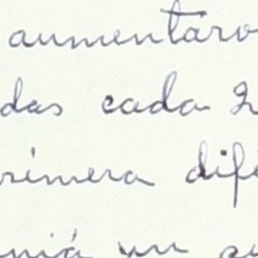 aumentaro
das cada 2
rimera dif
un